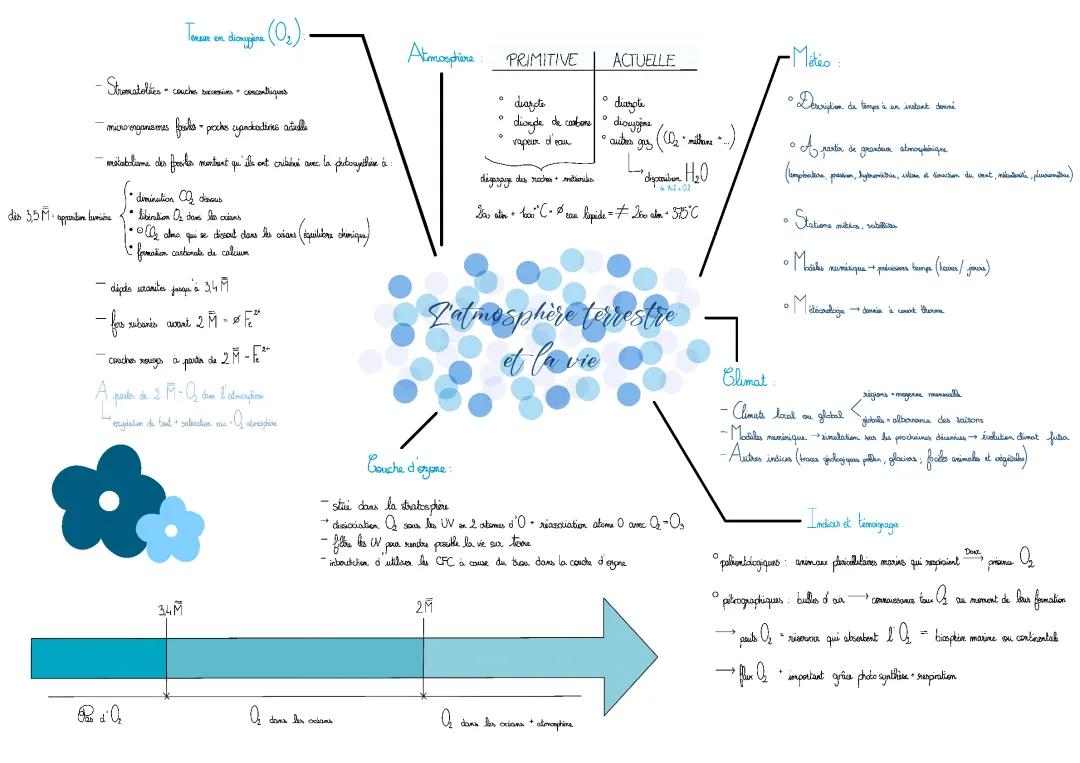 Teneur en dioxygène (O₂) :
- Stromatolites = couches successives + concentriques
- micro-organismes fossiles = proches cyanobactéries actuelle
- métabolisme des fossiles montrent qu'ils ont critérié avec la photosynthèse à :
dès 3,5 M̅ = apparition lumière
• diminution CO₂ dissous
• libération O₂ dans les océans
• CO₂ atmo. qui se dissout dans les océans (équilibre chimique)
• formation carbonate de calcium
- dépôts uranites jusqu'à 3,4 M̅
- fers rubanés avant 2 M̅ = ∅ Fe²⁺
- couches rouges à partir de 2 M̅ - Fe²⁺
A partir de 2 M̅ - O₂ dans l'atmosphère
↳ oxydation de tout + saturation eau = O₂ atmosphère
Atmosphère :
PRIMITIVE | ACTUELLE
° diazote
° dioxyde de carbone
° vapeur d'eau
dégazage des roches + météorites
° diazote
° dioxygène
° autres gaz (CO₂ + méthane + ...)
↳ disparition H₂O
260 atm + 100°C = ∅ eau liquide = ≠ 260 atm + 375°C
Météo :
° Description du temps à un instant donné
° A partir de grandeur atmosphérique
(température, pression, hygrométrie, vitesse et direction du vent, nébulosité, pluviométrie)
° Stations météos, satellites
° Modèles numérique → prévisions temps (heures / jours)
° Météorologie → donnée à court therme
L'atmosphère terrestre
et la vie
Climat :
- Climats local ou global
régions = moyenne mensuelle
globale = alternance des saisons
- Modèles numérique → simulation sur les prochaines décennies → évolution climat futur
- Autres indices (traces géologiques pollen, glaciers, fociles animales et végétales)
Couche d'ozone :
- situé dans la stratosphère
→ dissociation O₂ sous les UV en 2 atomes d'O + réassociation atome O avec O₂ = O₃
- filtre les UV pour rendre possible la vie sur terre
- interdiction d'utiliser les CFC à cause du trou dans la couche d'ozone
Indices et témoignages
° paléontologiques : animaux pluricellulaires marins qui respiraient Donc → présence O₂
° pétrographiques : bulles d'air → connaissance taux O₂ au moment de leurs formation
→ puits O₂ = réservoir qui absorbent l'O₂ = biosphère marine ou continentale
→ flux O₂ + important grâce photosynthèse + respiration
3,4 M̅
2 M̅
Pas d'O₂
O₂ dans les océans
O₂ dans les océans + atmosphère